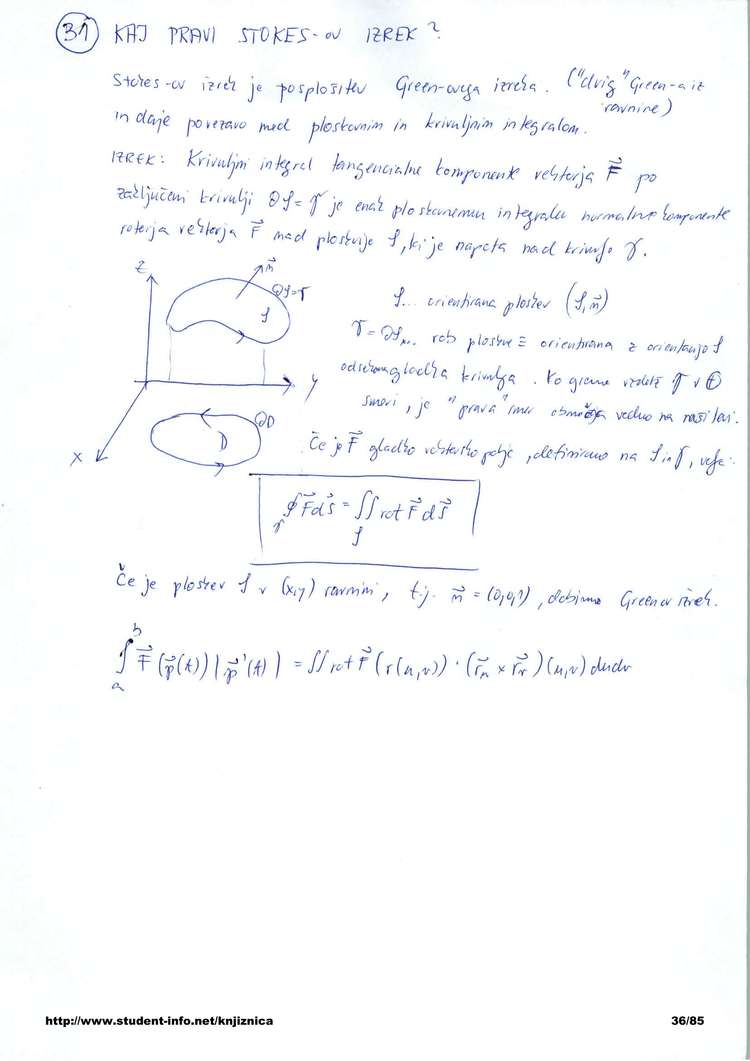 31 KAJ PRAVI STOKES-ov IZREK?
Stokes-ov izrek je posplošitev Green-ovega izreka. ("dvig" Green-a iz
ravnine)
in daje povezavo med ploskovnim in krivuljnim integralom.
IZREK: Krivuljni integral tangencialne komponente vektorja F⃗ po
zaključeni krivulji ∂S=γ je enak ploskovnemu integralu normalne komponente
rotorja vektorja F⃗ nad ploskvijo S, ki je napeta nad krivuljo γ.
z n⃗ ∂S=γ
S
S... orientirana ploskev (S,n⃗)
γ=∂S... rob ploskve ≡ orientirana z orientacijo S
odsekoma gladka krivulja. Ko gremo vzdolž γ v ⊕
y
smeri, je "prava" smer območja vedno na naši levi.
∂D
D
x
Če je F⃗ gladko vektorsko polje, definirano na S in γ, velja:
∮γ F⃗ds⃗ = ∬S rot F⃗ dS⃗
Če je ploskev S v (x,y) ravnini, t.j. n⃗ = (0,0,1), dobimo Greenov izrek.
∫ₐᵇ F⃗(p⃗(t))|p⃗'(t)| = ∬ rot F⃗(r(u,v))·(r⃗u × r⃗v)(u,v) dudv
http://www.student-info.net/knjiznica 36/85